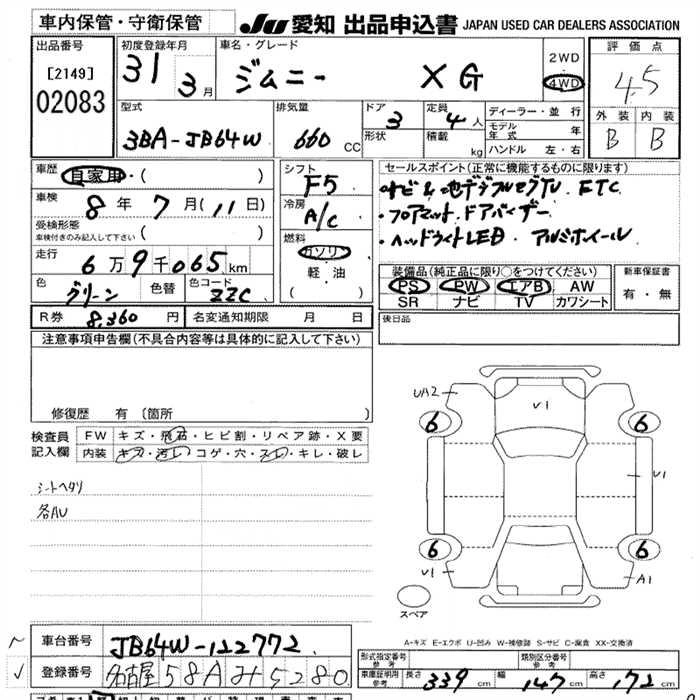 車内保管・守衛保管
JU 愛知 出品申込書 JAPAN USED CAR DEALERS ASSOCIATION
出品番号
[2149]
02083
初度登録年月
31 3月
車名・グレード
ジムニー XG
2WD
4WD
評価点
4.5
外装 内装
B B
型式
3BA-JB64W
排気量
660 CC
ドア
3
形状
定員
4人
積載
kg
ディーラー・並行
モデル年式 年
ハンドル 左・右
車歴
自家用・( )
車検
8年 7月(11日)
受検形態
車検付きのみ記入して下さい( )
走行
6万9千065km
色
グリーン
色替
色コード
ZZC
シフト
F5
冷房
A/C
燃料
ガソリン
軽油
( )
セールスポイント(正常に機能するものに限ります)
・ナビ&地デジフルセグTV. ETC
・フロアマット.ドアバイザー
・ヘッドライトLED. アルミホイール
装備品(純正品に限り○をつけてください)
PS PW エアB AW
SR ナビ TV カワシート
新車保証書
有・無
R券 8,360円
名変通知期限 月 日
後日品
注意事項申告欄(不具合内容等は具体的に記入して下さい)
修復歴 有(箇所 )
検査員記入欄
FW キズ・飛石・ヒビ割・リペア跡・X要
内装 キズ・汚レ・コゲ・穴・スレ・キレ・破レ
シートヘタリ
各AU
UA2
V1
6
6
V1
6
6
V1
A1
スペア
A-キズ E-エクボ U-凹み W-補修跡 S-サビ C-腐食 XX-交換済
車台番号
JB64W-122772
登録番号
名古屋58Aみ5280
形式指定番号
参考
類別区分番号
参考
車庫証明用
参考
長さ 339cm
幅 147cm
高さ 172cm